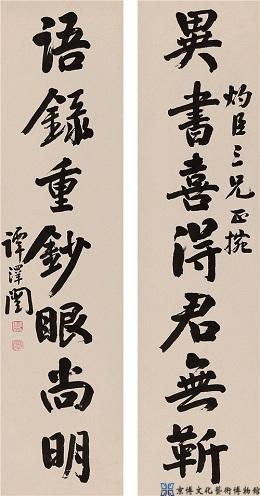 異書喜得君無靳
灼臣三兄正捥
語錄重鈔眼尚明
譚澤闓
京博文化藝術博物館